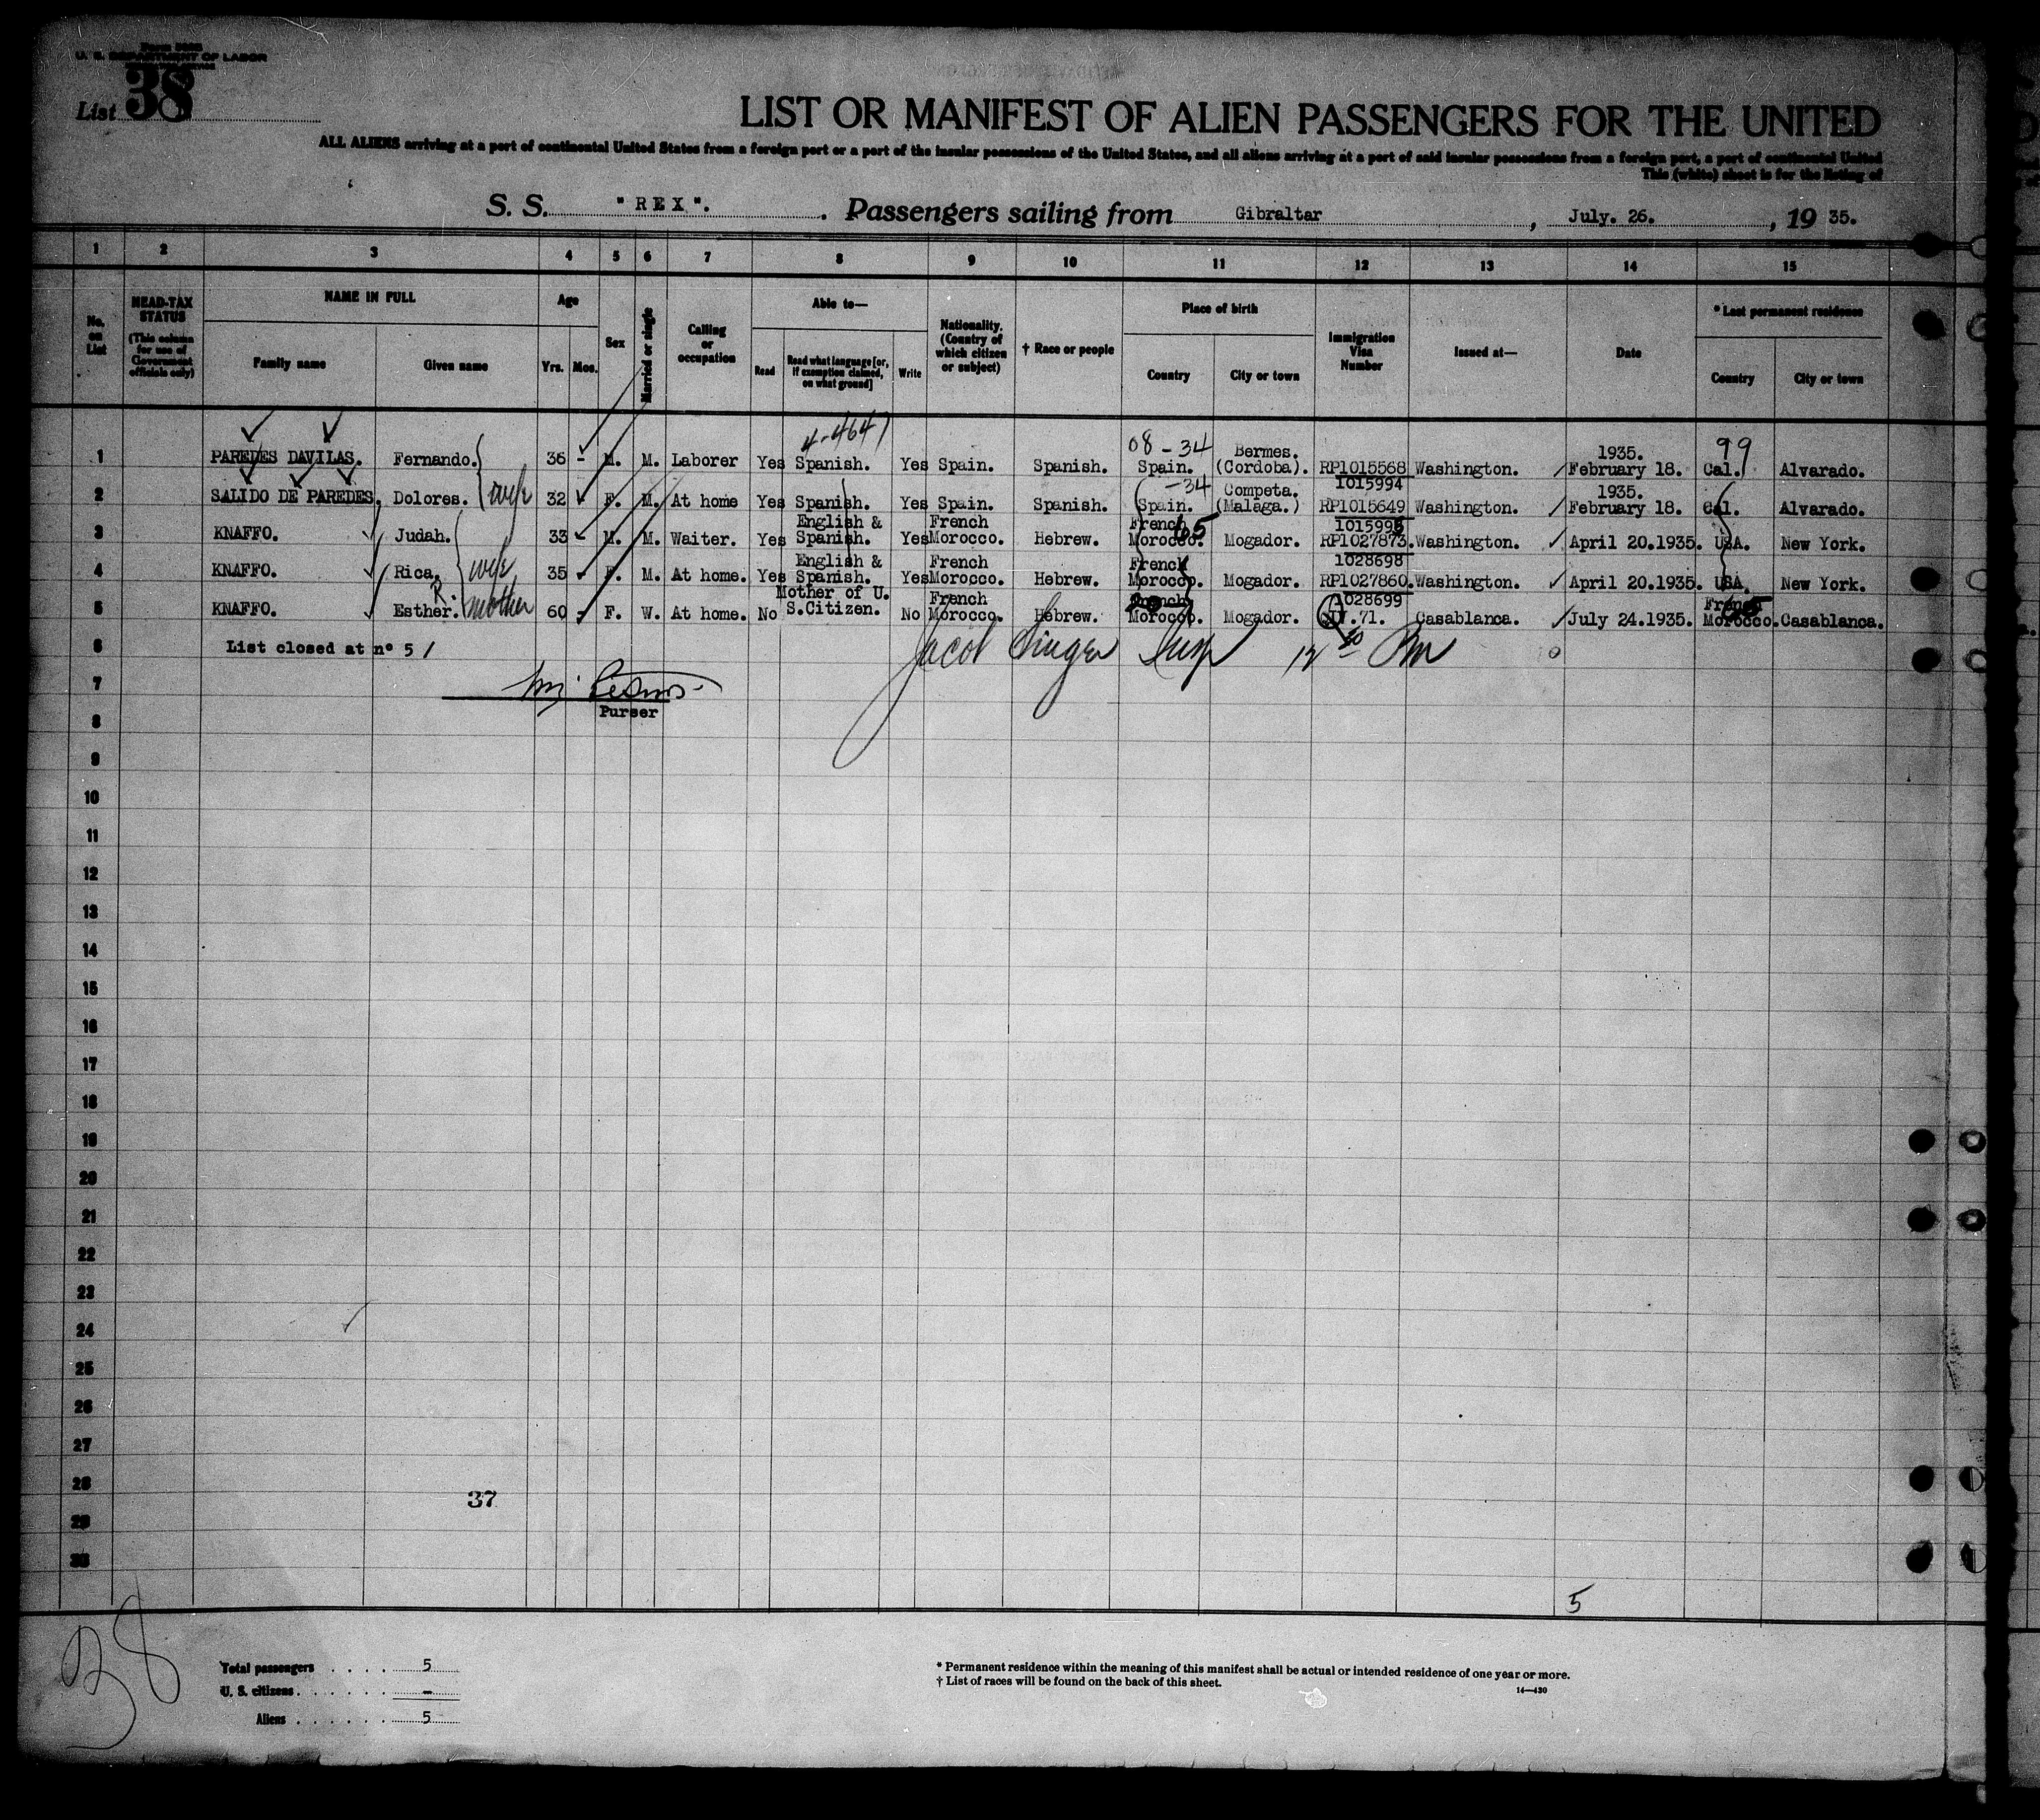 Form 500
U. S. DEPARTMENT OF LABOR
List 38
LIST OR MANIFEST OF ALIEN PASSENGERS FOR THE UNITED
ALL ALIENS arriving at a port of continental United States from a foreign port or a part of the insular possessions of the United States, and all aliens arriving at a port of said insular possessions from a foreign port, a port of continental United
This (white) sheet is for the listing of
S. S. "REX". Passengers sailing from Gibraltar, July. 26., 19 35.
1 2 3 4 5 6 7 8 9 10 11 12 13 14 15
No. on List
HEAD-TAX STATUS
(This column for use of Government officials only)
NAME IN FULL
Family name
Given name
Age
Yrs. Mos.
Sex
Married or single
Calling or occupation
Able to—
Read
Read what language [or, if exemption claimed, on what ground]
Write
Nationality. (Country of which citizen or subject)
† Race or people
Place of birth
Country
City or town
Immigration Visa Number
Issued at—
Date
* Last permanent residence
Country
City or town
4-4647
08-34
99
1 PAREDES DAVILAS. Fernando. 36 - M. M. Laborer Yes Spanish. Yes Spain. Spanish. Spain. Bermes. (Cordoba). RP1015568 Washington. 1935. February 18. Cal. Alvarado.
1015994
-34
2 SALIDO DE PAREDES, Dolores. wife 32 F. M. At home Yes Spanish. Yes Spain. Spanish. Spain. Competa. (Malaga.) RP1015649 Washington. 1935. February 18. Cal. Alvarado.
1015995
3 KNAFFO. Judah. 33 M. M. Waiter. Yes English & Spanish. Yes French Morocco. Hebrew. French Morocco. 65 Mogador. RP1027873. Washington. April 20.1935. USA. New York.
1028698
4 KNAFFO. Rica. wife 35 F. M. At home. Yes English & Spanish. Yes French Morocco. Hebrew. French Morocco. Mogador. RP1027860. Washington. April 20.1935. USA. New York.
1028699
5 KNAFFO. Esther. R. mother 60 - F. W. At home. No Mother of U. S.Citizen. No French Morocco. Hebrew. French Morocco. Mogador. 71. Casablanca. July 24.1935. French Morocco. Casablanca.
6 List closed at nº 5 /
Jacob Singer Insp 12 30 Pm
7
Purser
8
9
10
11
12
13
14
15
16
17
18
19
20
21
22
23
24
25
26
27
28
37
29
30
5
38
Total passengers . . . . 5
U. S. citizens . . . . . . -
Aliens . . . . . . 5
* Permanent residence within the meaning of this manifest shall be actual or intended residence of one year or more.
† List of races will be found on the back of this sheet.
14—430